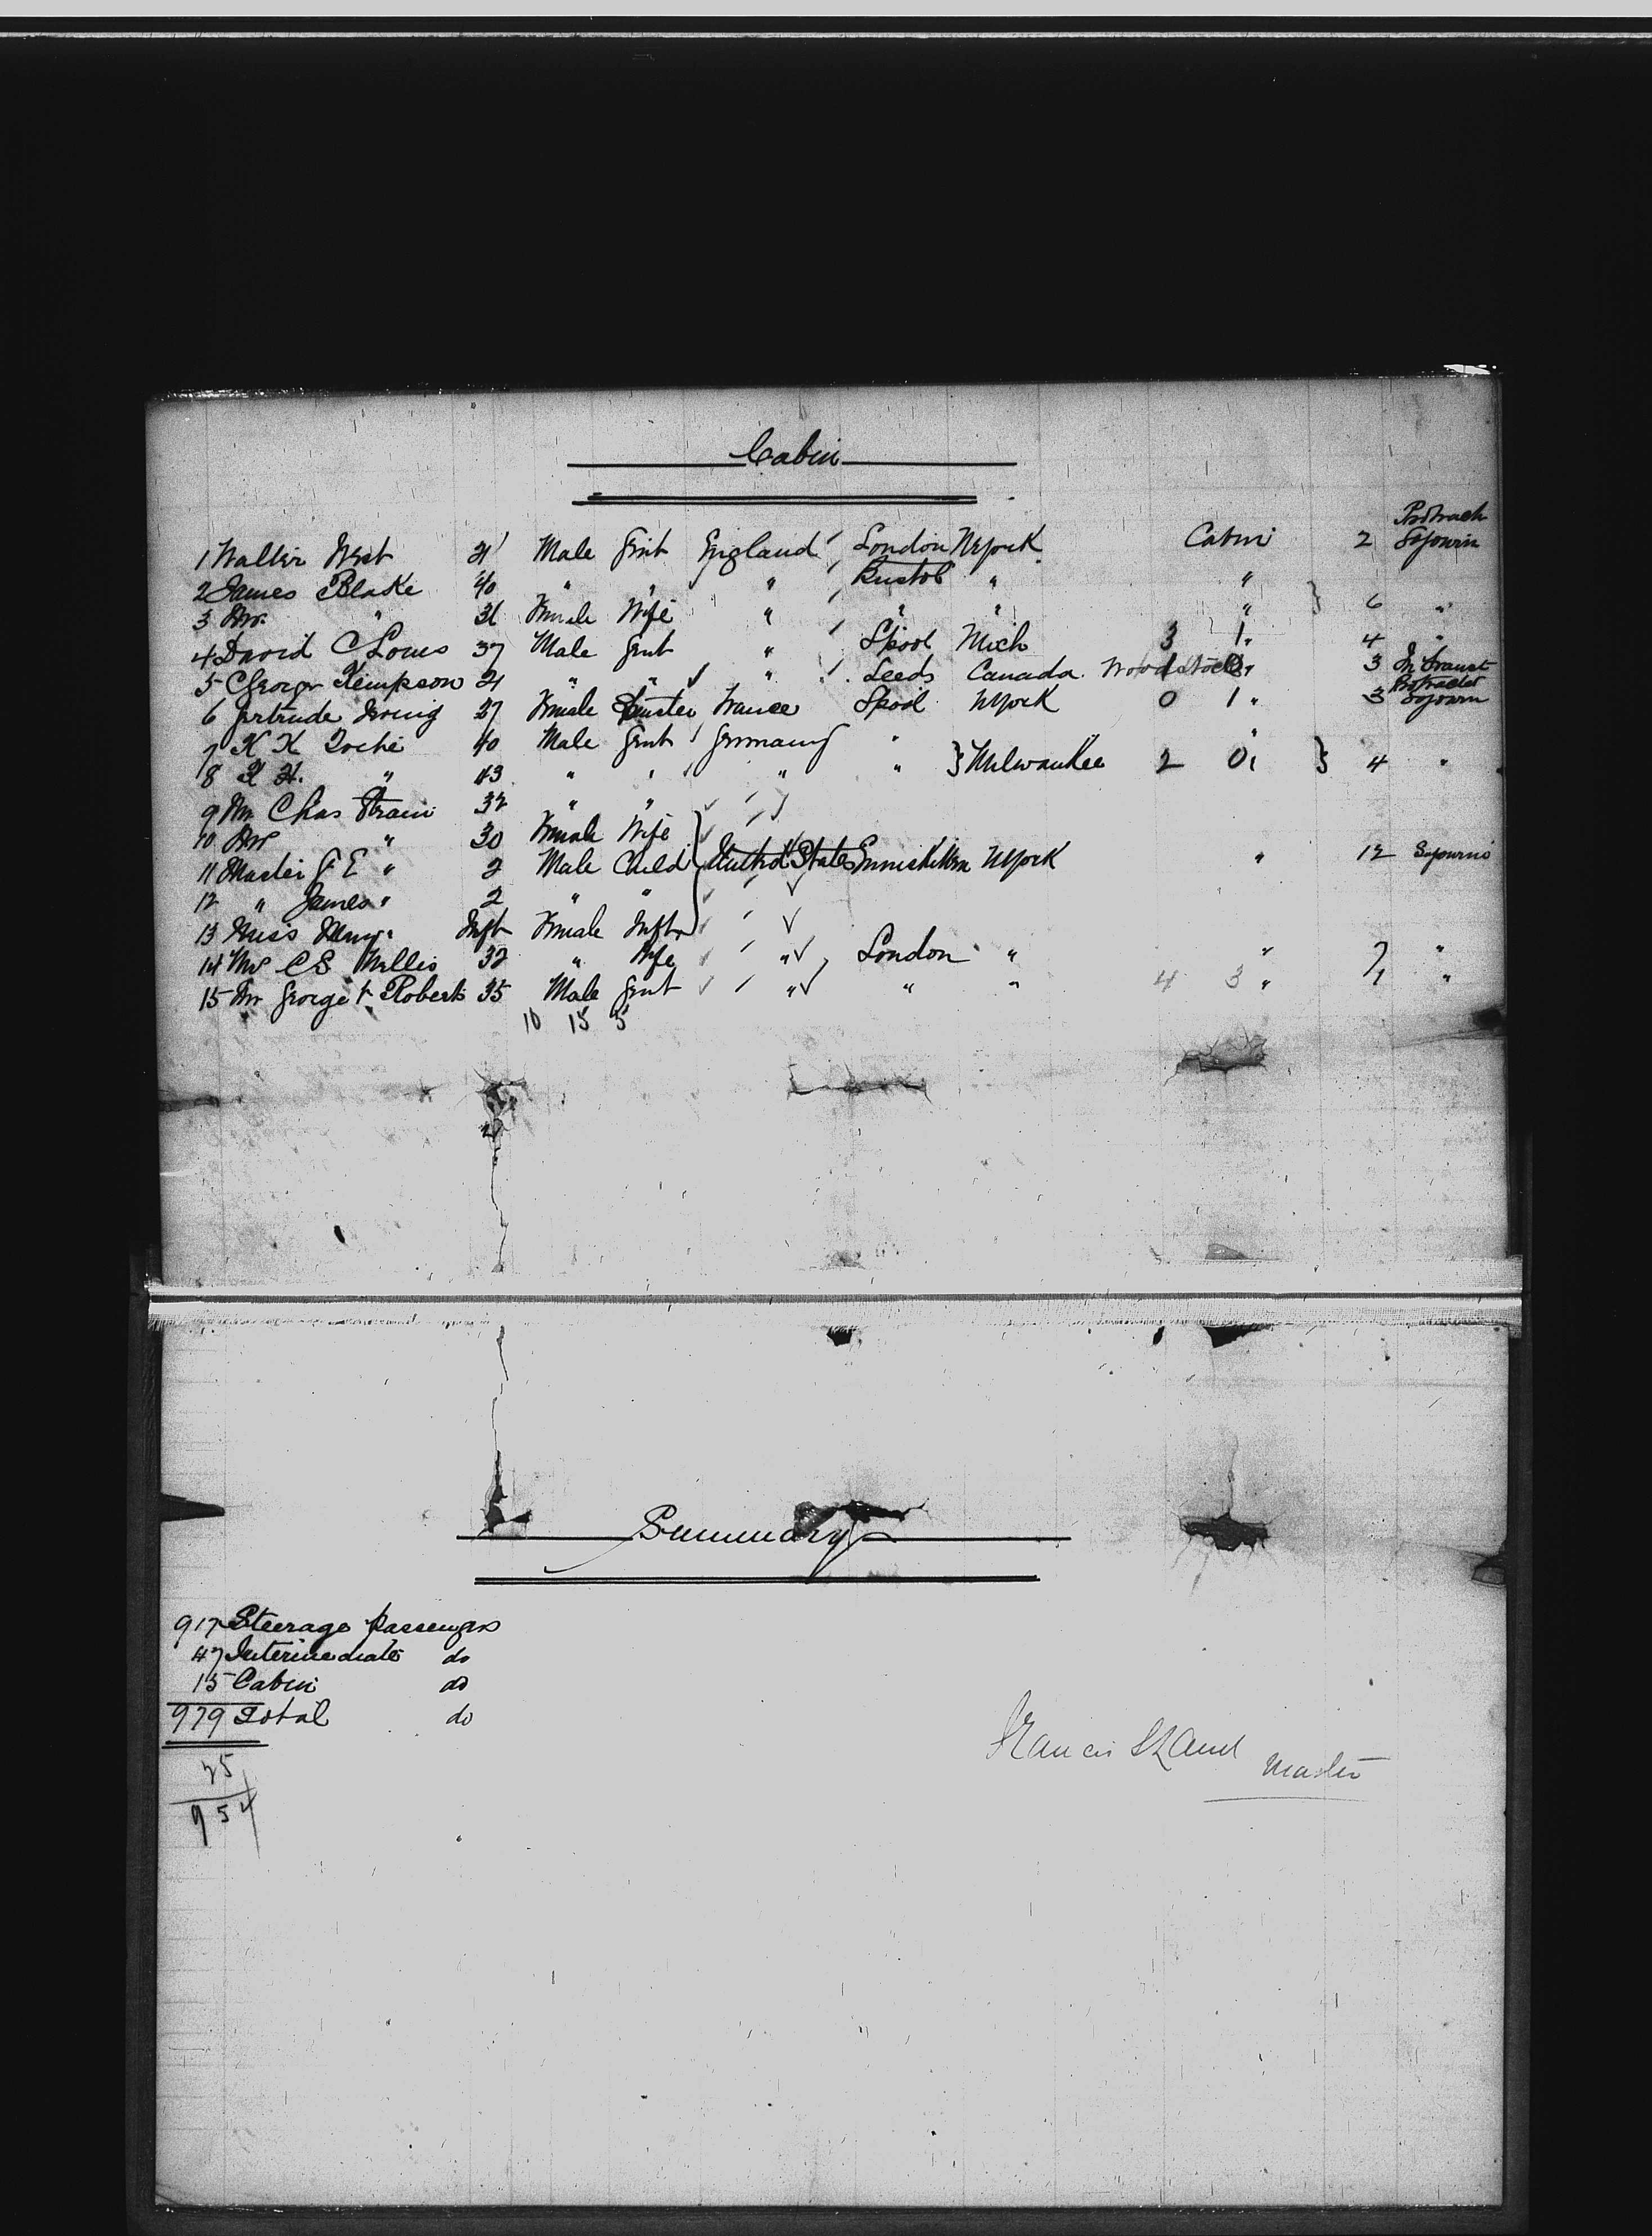 Cabin
Protract
1 Walter West 21 Male Gent England London NYork Cabin 2 Sojourn
2 James Blake 40 " " " Bristol " " } 6 "
3 Mrs. " 31 Female Wife " " " "
4 David C Lows 37 Male Gent " Lpool Mich 3 1 " 4 "
5 George Kempson 21 " " " Leeds Canada Woodstock " 3 In Transit
Protracted
6 Gertrude 27 Female Spinster France Lpool NYork 0 1 " 3 Sojourn
7 K K Toche 40 Male Gent Germany " "
8 F H. " 43 " " " " } Milwaukee 2 0 } 4 "
9 Mr Chas Strain 32 " "
10 Mrs " 30 Female Wife
11 Master G E " 2 Male Child United States Enniskillen NYork " 12 Sojourn
12 " James " 2 " "
13 Miss " Inft Female Inft
14 Mrs C S Willis 32 " Wife " London " " "
15 Mr George Roberts 35 Male Gent " " " 4 3 " "
10 15 5
Summary
917 Steerage passengers
47 Intermediate do
15 Cabin do
979 Total do
25
954
Francis Master